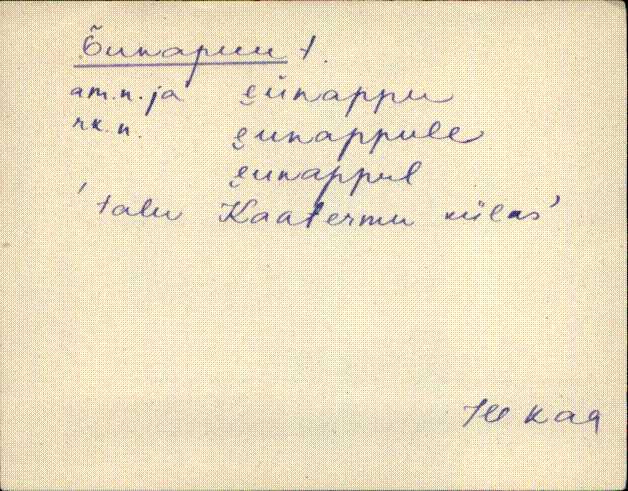 Õunapuu t.
am.n. ja e̮ùnappu
rk.n. e̮unappule
e̮unappul
'talu Kaatermu külas'
Hll Kaa